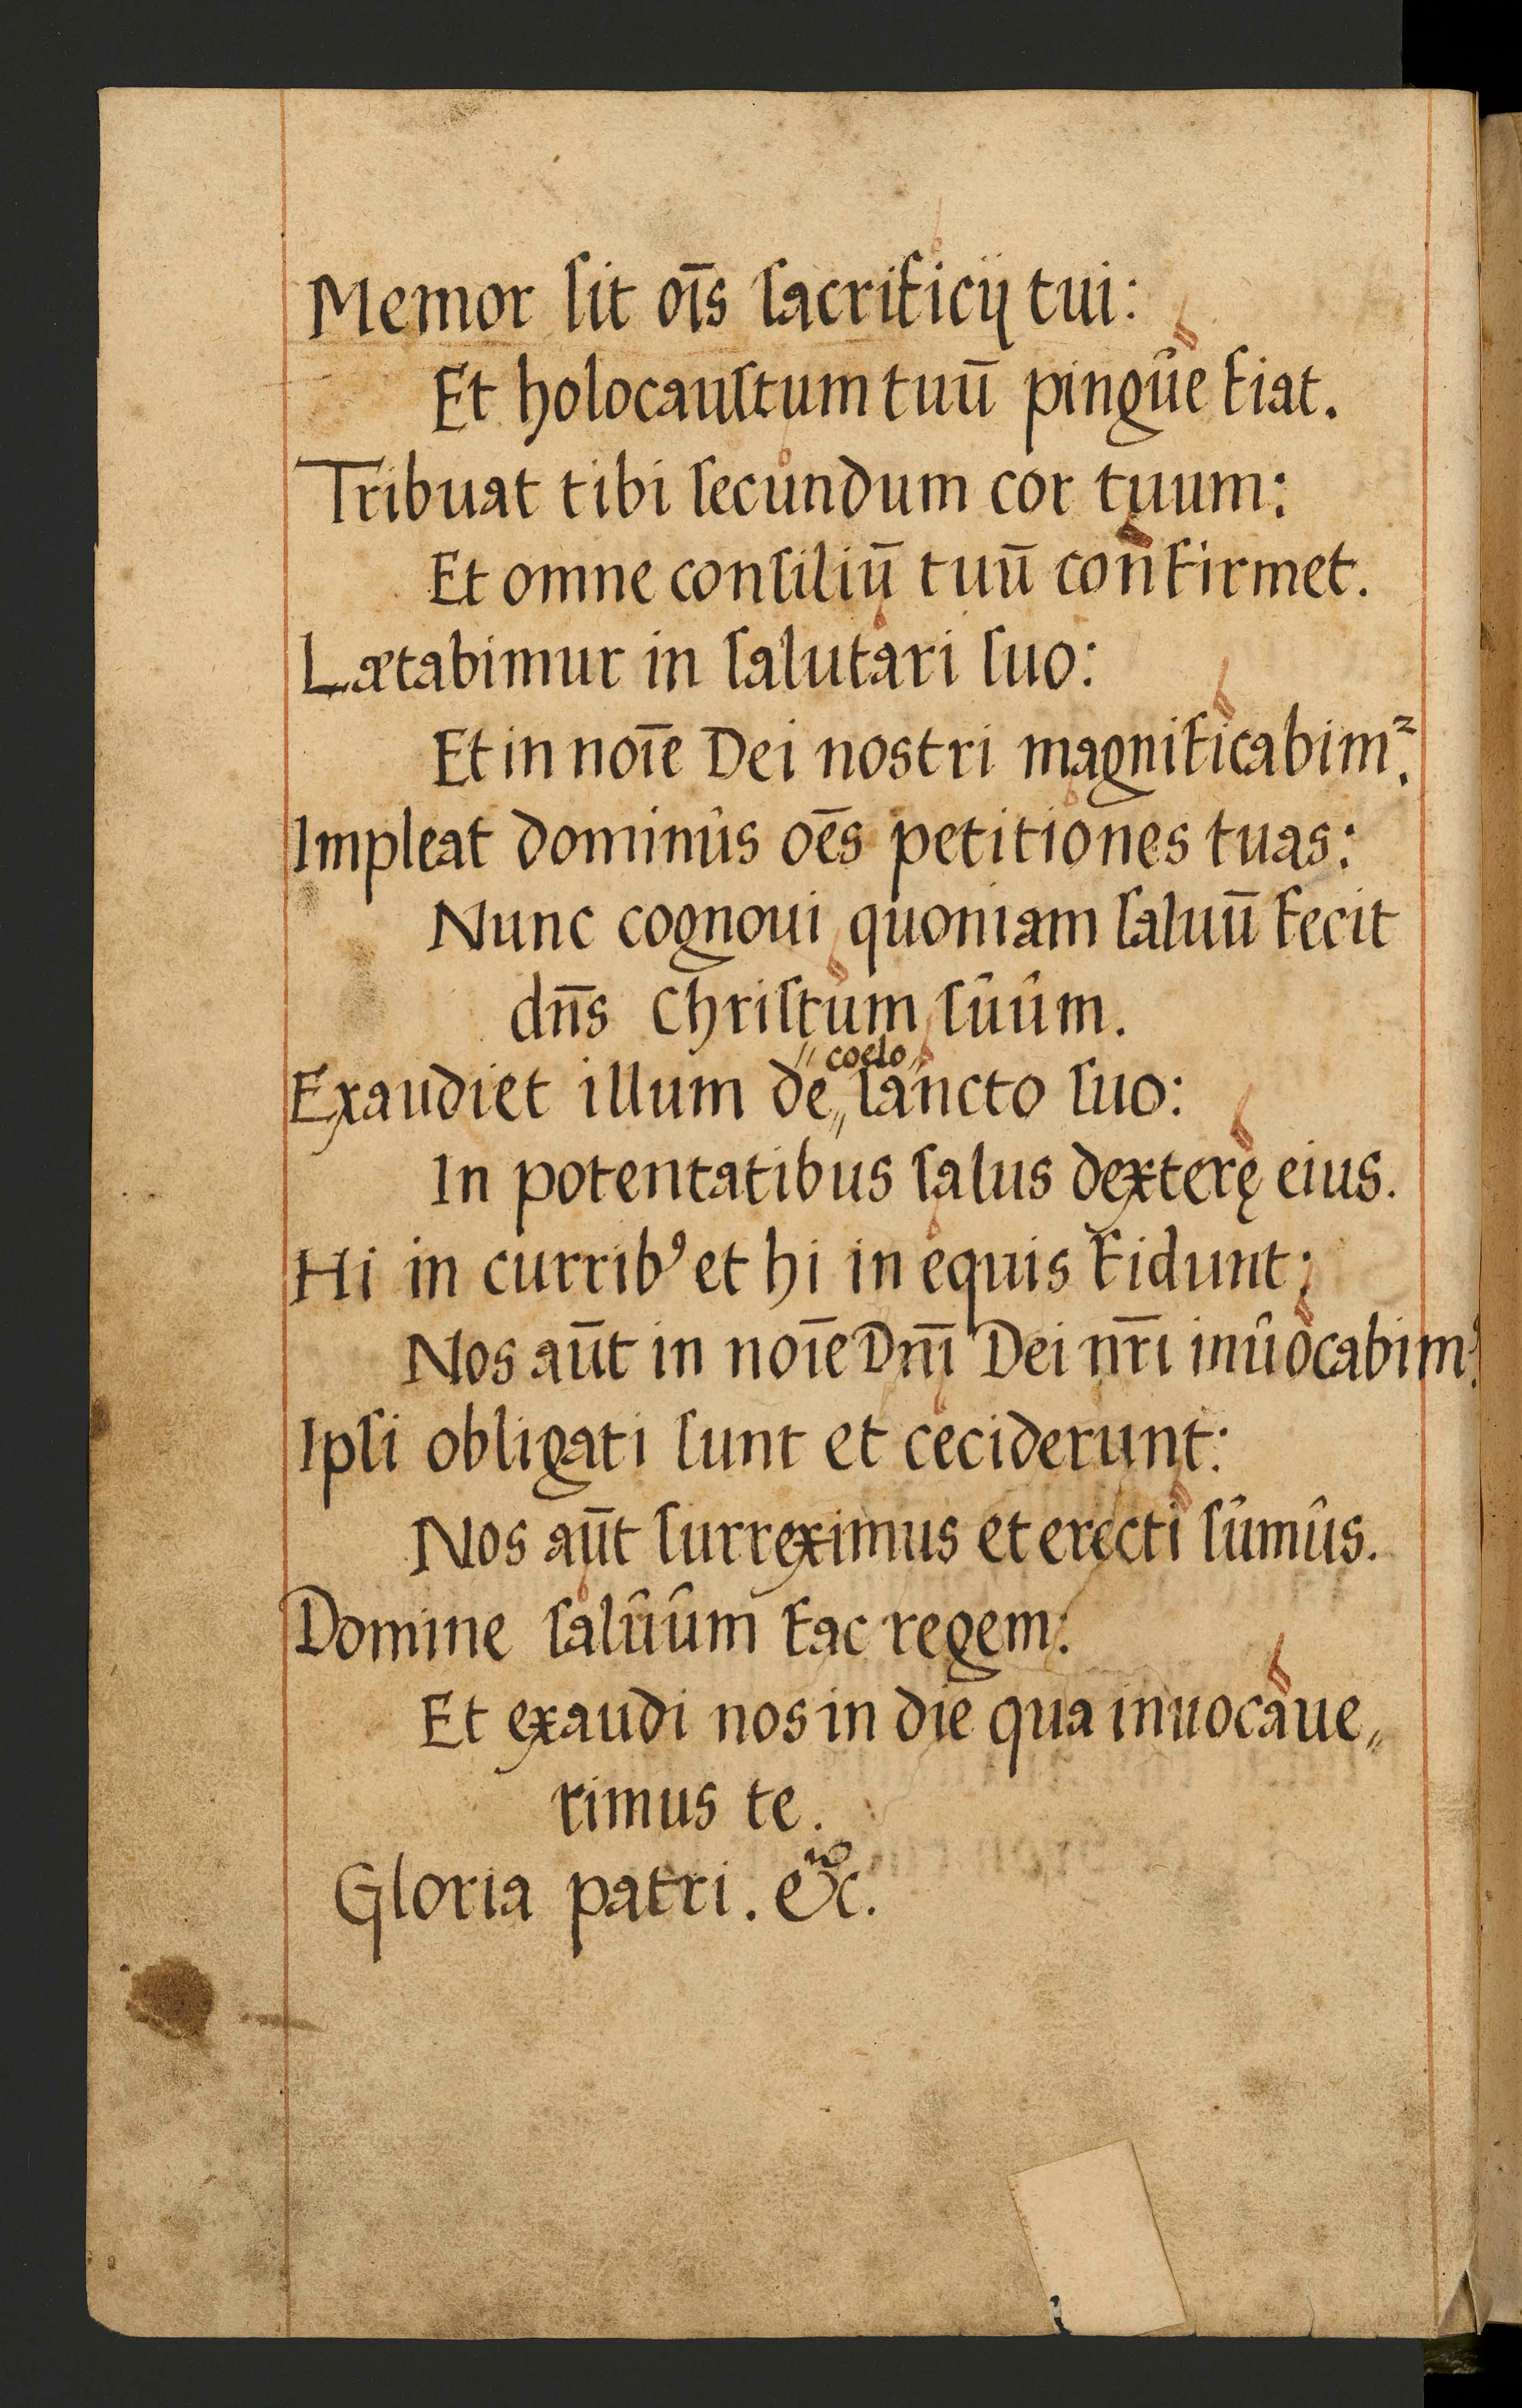 Memor ſit oīs ſacrificij tui:
Et holocauſtum tuū pingûe fiat.
Tribuat tibi ſecundum cor tuum:
Et omne conſiliū tuū confirmet.
Lætabimur in ſalutari ſuo:
Et in noīe Dei nostri magnificabimꝰ.
Impleat dominûs oēs petitiones tuas:
Nunc cognoui quoniam ſaluū fecit
dn̄s Chriſtum ſûûm.
coelo
Exaudiet illum de„ ſancto ſuo:
In potentatibus ſalus dexterę eius.
Hi in curribꝰ et hi in equis fidunt:
Nos aūt in noīe Dn̄i Dei nr̄i inûocabimꝰ.
Ipſi obligati ſunt et ceciderunt:
Nos aūt ſurreximus et erecti ſûmûs.
Domine ſalûûm fac regem:
Et exaudi nos in die qua inuocaue„
rimus te.
Gloria patri. &c.